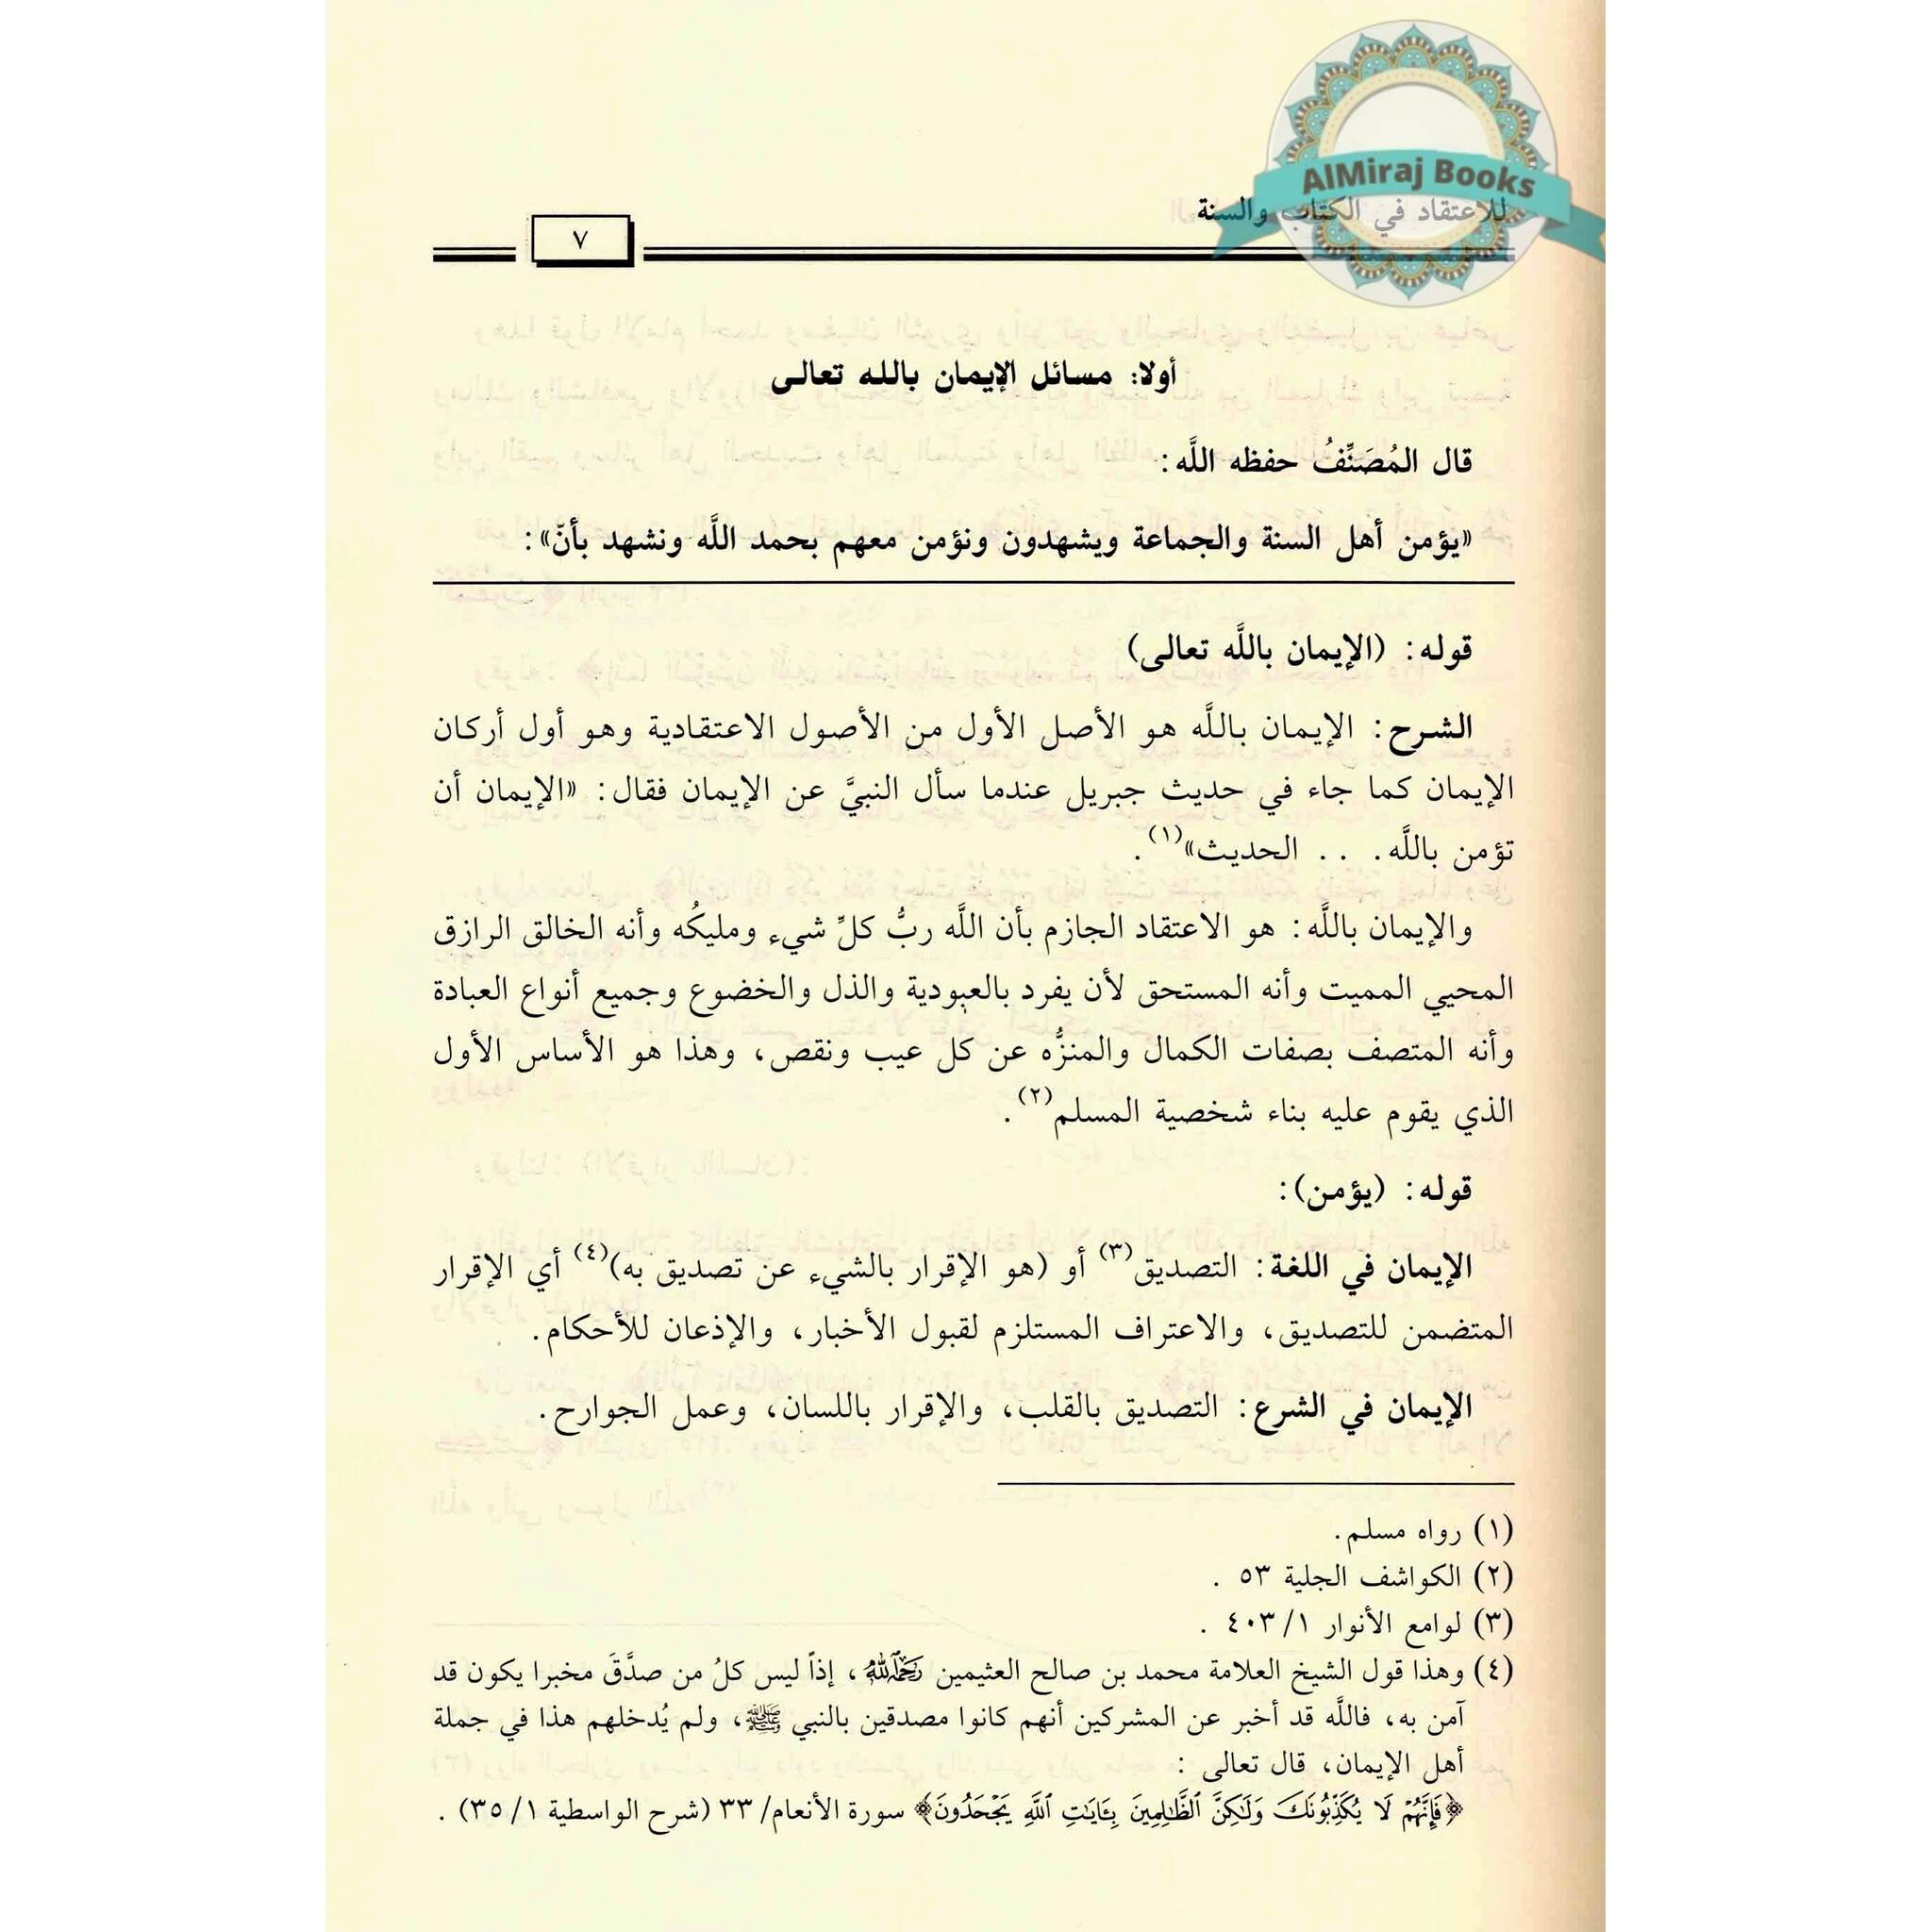 AlMiraj Books
للاعتقاد في الكتاب والسنة
٧
أولا: مسائل الإيمان بالله تعالى
قال المُصَنِّفُ حفظه اللَّه:
«يؤمن أهل السنة والجماعة ويشهدون ونؤمن معهم بحمد اللَّه ونشهد بأنّ»:
قوله: (الإيمان باللَّه تعالى)
الشرح: الإيمان باللَّه هو الأصل الأول من الأصول الاعتقادية وهو أول أركان
الإيمان كما جاء في حديث جبريل عندما سأل النبيَّ عن الإيمان فقال: «الإيمان أن
تؤمن باللَّه. . . الحديث»(١).
والإيمان باللَّه: هو الاعتقاد الجازم بأن اللَّه ربُّ كلِّ شيء ومليكُه وأنه الخالق الرازق
المحيي المميت وأنه المستحق لأن يفرد بالعبودية والذل والخضوع وجميع أنواع العبادة
وأنه المتصف بصفات الكمال والمنزُّه عن كل عيب ونقص، وهذا هو الأساس الأول
الذي يقوم عليه بناء شخصية المسلم(٢).
قوله: (يؤمن):
الإيمان في اللغة: التصديق(٣) أو (هو الإقرار بالشيء عن تصديق به)(٤) أي الإقرار
المتضمن للتصديق، والاعتراف المستلزم لقبول الأخبار، والإذعان للأحكام.
الإيمان في الشرع: التصديق بالقلب، والإقرار باللسان، وعمل الجوارح.
(١) رواه مسلم.
(٢) الكواشف الجلية ٥٣ .
(٣) لوامع الأنوار ١/ ٤٠٣ .
(٤) وهذا قول الشيخ العلامة محمد بن صالح العثيمين رحمه الله، إذاً ليس كلُ من صدَّقَ مخبرا يكون قد
آمن به، فاللَّه قد أخبر عن المشركين أنهم كانوا مصدقين بالنبي ﷺ، ولم يُدخلهم هذا في جملة
أهل الإيمان، قال تعالى :
﴿فَإِنَّهُمْ لَا يُكَذِّبُونَكَ وَلَٰكِنَّ ٱلظَّٰلِمِينَ بِـَٔايَٰتِ ٱللَّهِ يَجْحَدُونَ﴾ سورة الأنعام/ ٣٣ (شرح الواسطية ١/ ٣٥) .